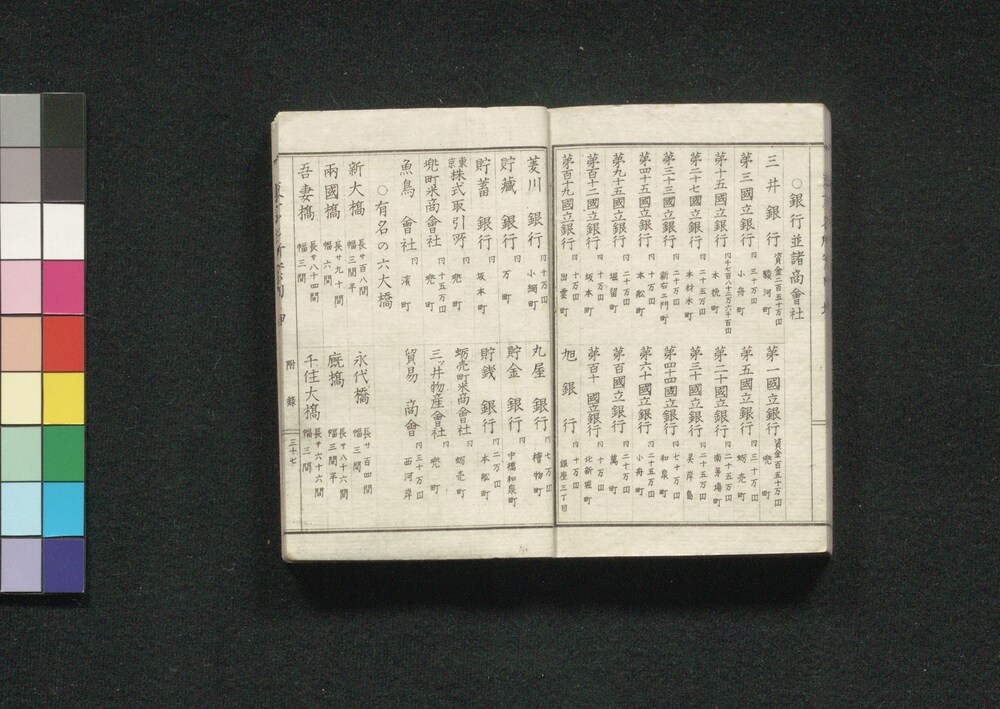 ○銀行並諸商會社
三井銀行 資金二百五十万円 駿河町
第一國立銀行 資金百五十万円 兜町
第三國立銀行 同三十万円 小舟町
第五國立銀行 同三十万円 蛎売町
第十五國立銀行 同千七百八十二万六千百円 木挽町
第二十國立銀行 同二十五万円 南茅場町
第二十七國立銀行 同二十五万円 本材木町
第三十國立銀行 同二十五万円 灵岸島
第三十三國立銀行 同二十万円 新右ェ門町
第四十四國立銀行 同七十万円 和泉町
第四十五國立銀行 同十万円 本舩町
第六十國立銀行 同二十五万円 小舟町
第九十五國立銀行 同二十万円 堀留町
第百國立銀行 同二十万円 萬町
第百十二國立銀行 同十万円 坂本町
第百十國立銀行 同十万円 北新堀町
第百十九國立銀行 同十万円 出雲町
旭銀行 同十万円 銀座三丁目
菱川銀行 同十万円 小網町
丸屋銀行 同七万円 檜物町
貯藏銀行 同 万町
貯金銀行 同 中橋和泉町
貯蓄銀行 同 坂本町
貯銭銀行 同二万円 本舩町
東京株式取引所 同 兜町
蛎売町米商會社 同 蛎売町
兜町米商會社 同十五万円 兜町
三ッ井物産會社 同 兜町
魚鳥會社 同 濱町
貿易商會 同三十万円 西河岸
○有名の六大橋
新大橋 長サ百八間 幅三間半
永代橋 長サ百四間 幅三間
兩國橋 長サ九十間 幅六間
厩橋 長サ八十六間 幅三間半
吾妻橋 長サ八十四間 幅三間
千住大橋 長サ六十六間 幅三間
附錄
三十七